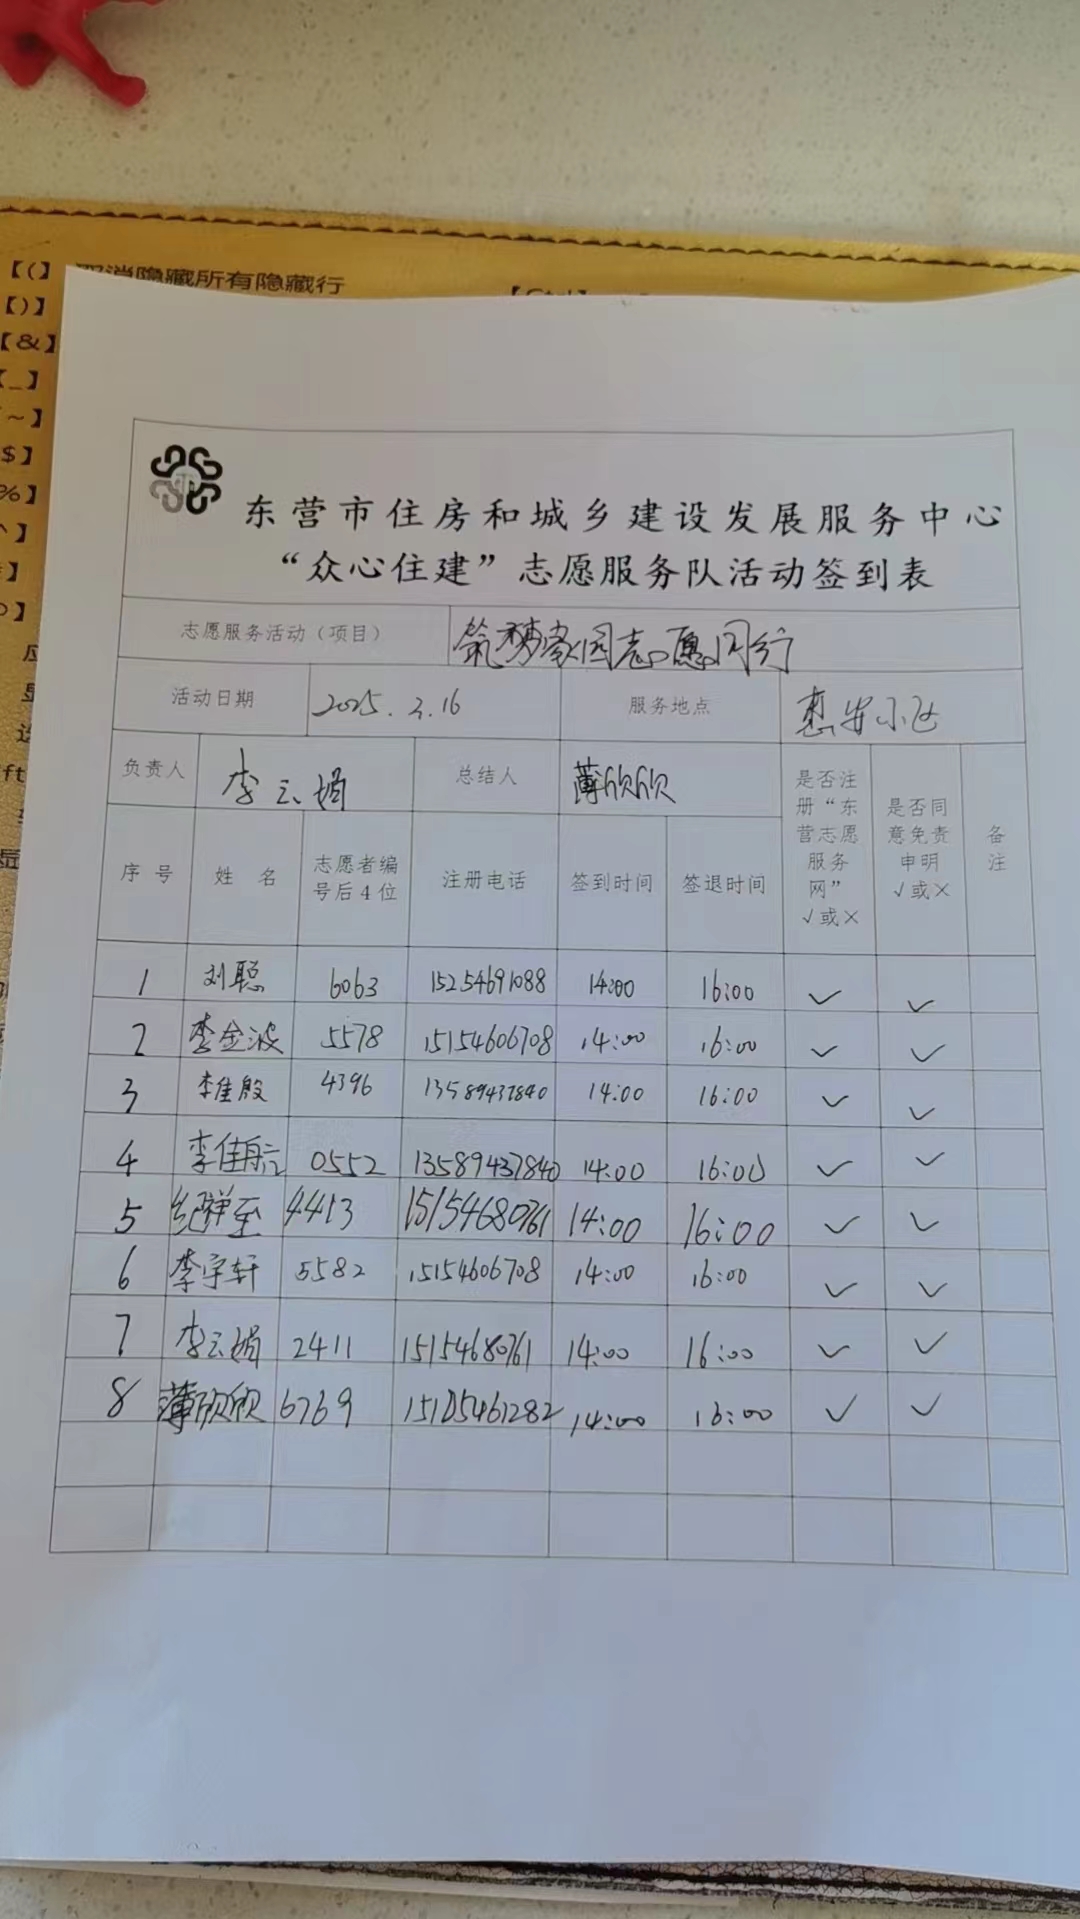 【(】 取消隐藏所有隐藏行
【Ctrl】
【)】
【&】
【_】
~】
$】
%】
】
】
东营市住房和城乡建设发展服务中心
“众心住建”志愿服务队活动签到表
志愿服务活动（项目） 筑梦家园志愿同行
活动日期 2025.2.16 服务地点 惠安小区
负责人 李云娟 总结人 薄欣欣
序号 姓名 志愿者编号后4位 注册电话 签到时间 签退时间 是否注册“东营志愿服务网”√或× 是否同意免责申明√或× 备注
1 刘聪 6063 15254691088 14:00 16:00 ✓ ✓
2 李金波 5578 15154606708 14:00 16:00 ✓ ✓
3 李佳殷 4396 13589437840 14:00 16:00 ✓ ✓
4 李佳航 0552 13589437840 14:00 16:00 ✓ ✓
5 4413 15154680761 14:00 16:00 ✓ ✓
6 李宇轩 5582 15154606708 14:00 16:00 ✓ ✓
7 李云娟 2411 15154680761 14:00 16:00 ✓ ✓
8 薄欣欣 6769 15105461282 14:00 16:00 ✓ ✓